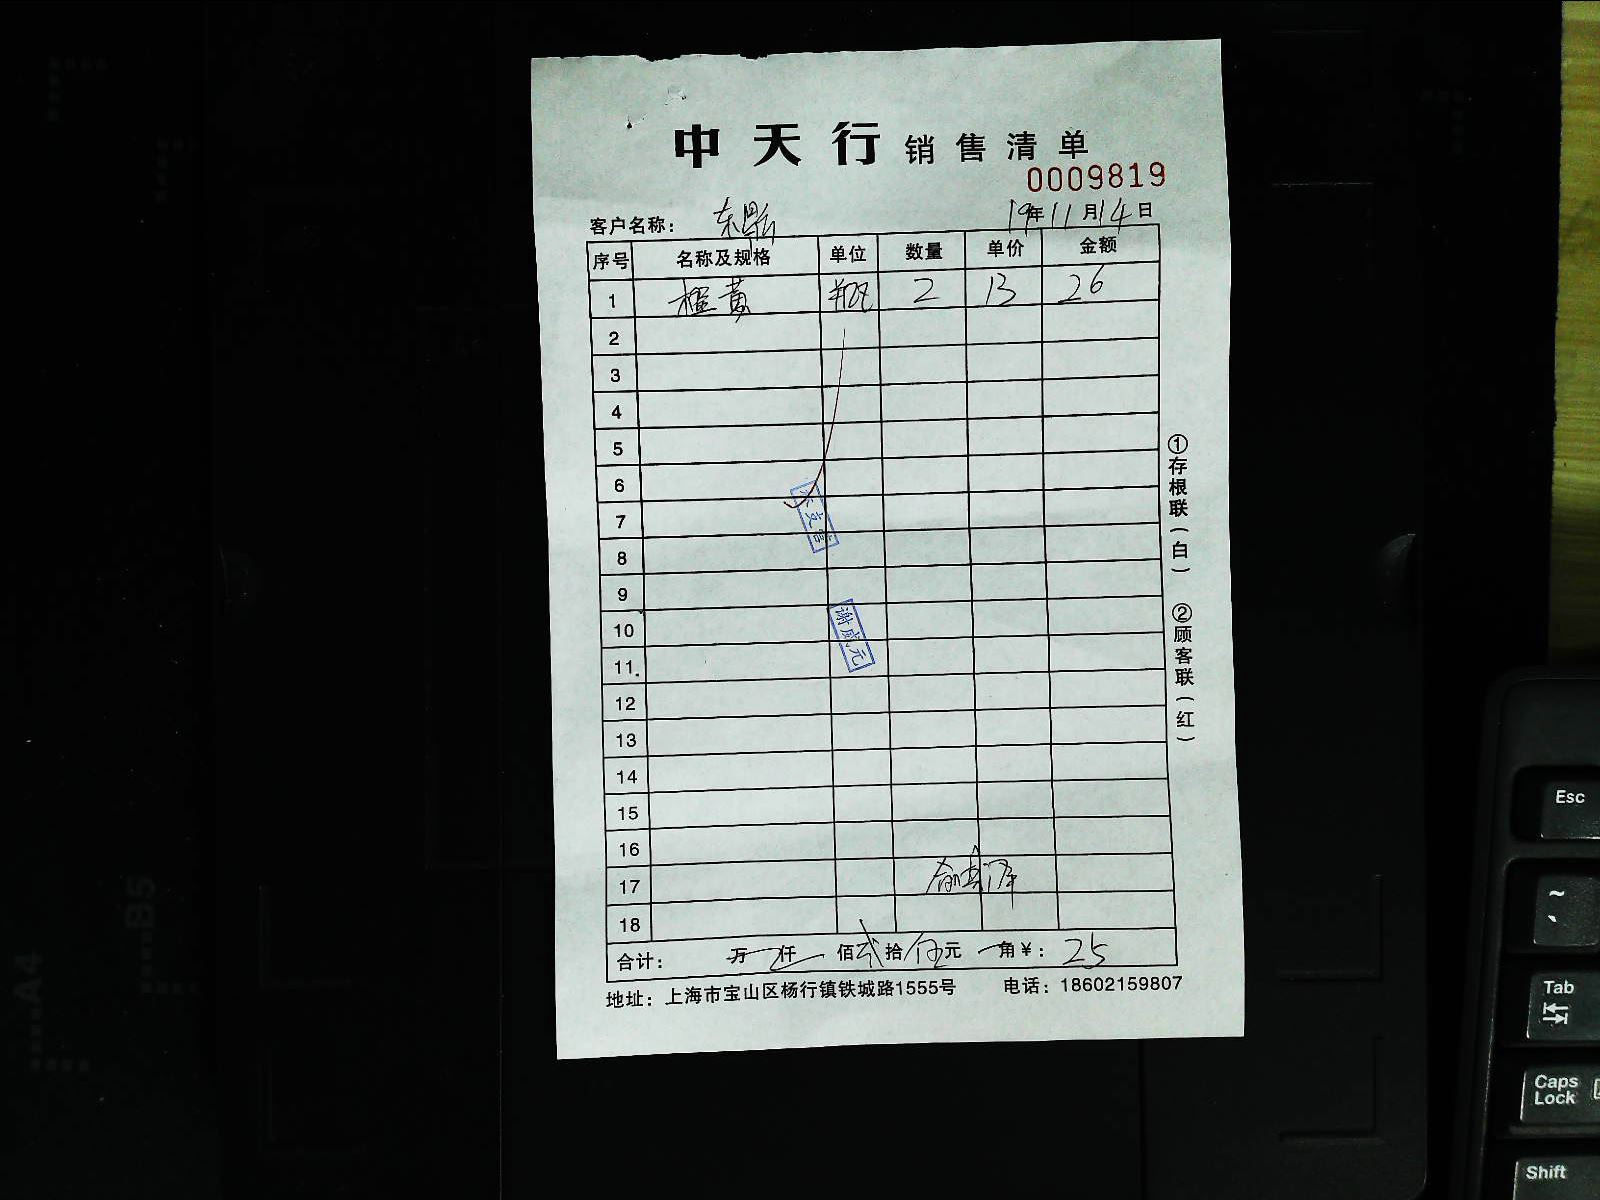 中天行 销售清单
0009819
客户名称：
19年11月14日
序号 名称及规格 单位 数量 单价 金额
1 橙黄 瓶 2 13 26
2
3
4
5
6
7
8
9
10
11
12
13
14
15
16
17
18
谢成元
合计： 万 仟 佰 贰拾伍元 角￥：25
地址：上海市宝山区杨行镇铁城路1555号 电话：18602159807
①存根联（白） ②顾客联（红）
A4
B5
Esc
~
`
Tab
Caps Lock
Shift